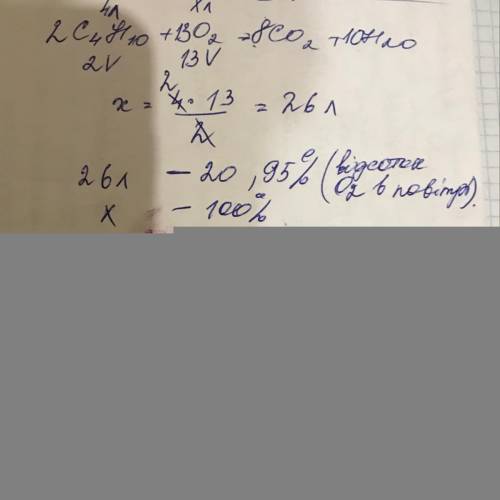 4л xл
2C₄H₁₀ + 13O₂ = 8CO₂ + 10H₂O
2V 13V
x = 4 · 13 / 2 = 26 л
2
26л – 20,95% (відсоток
O₂ в повітрі).
x – 100%